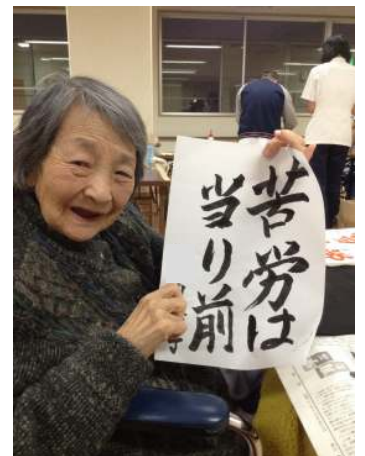 苦労は
当り前